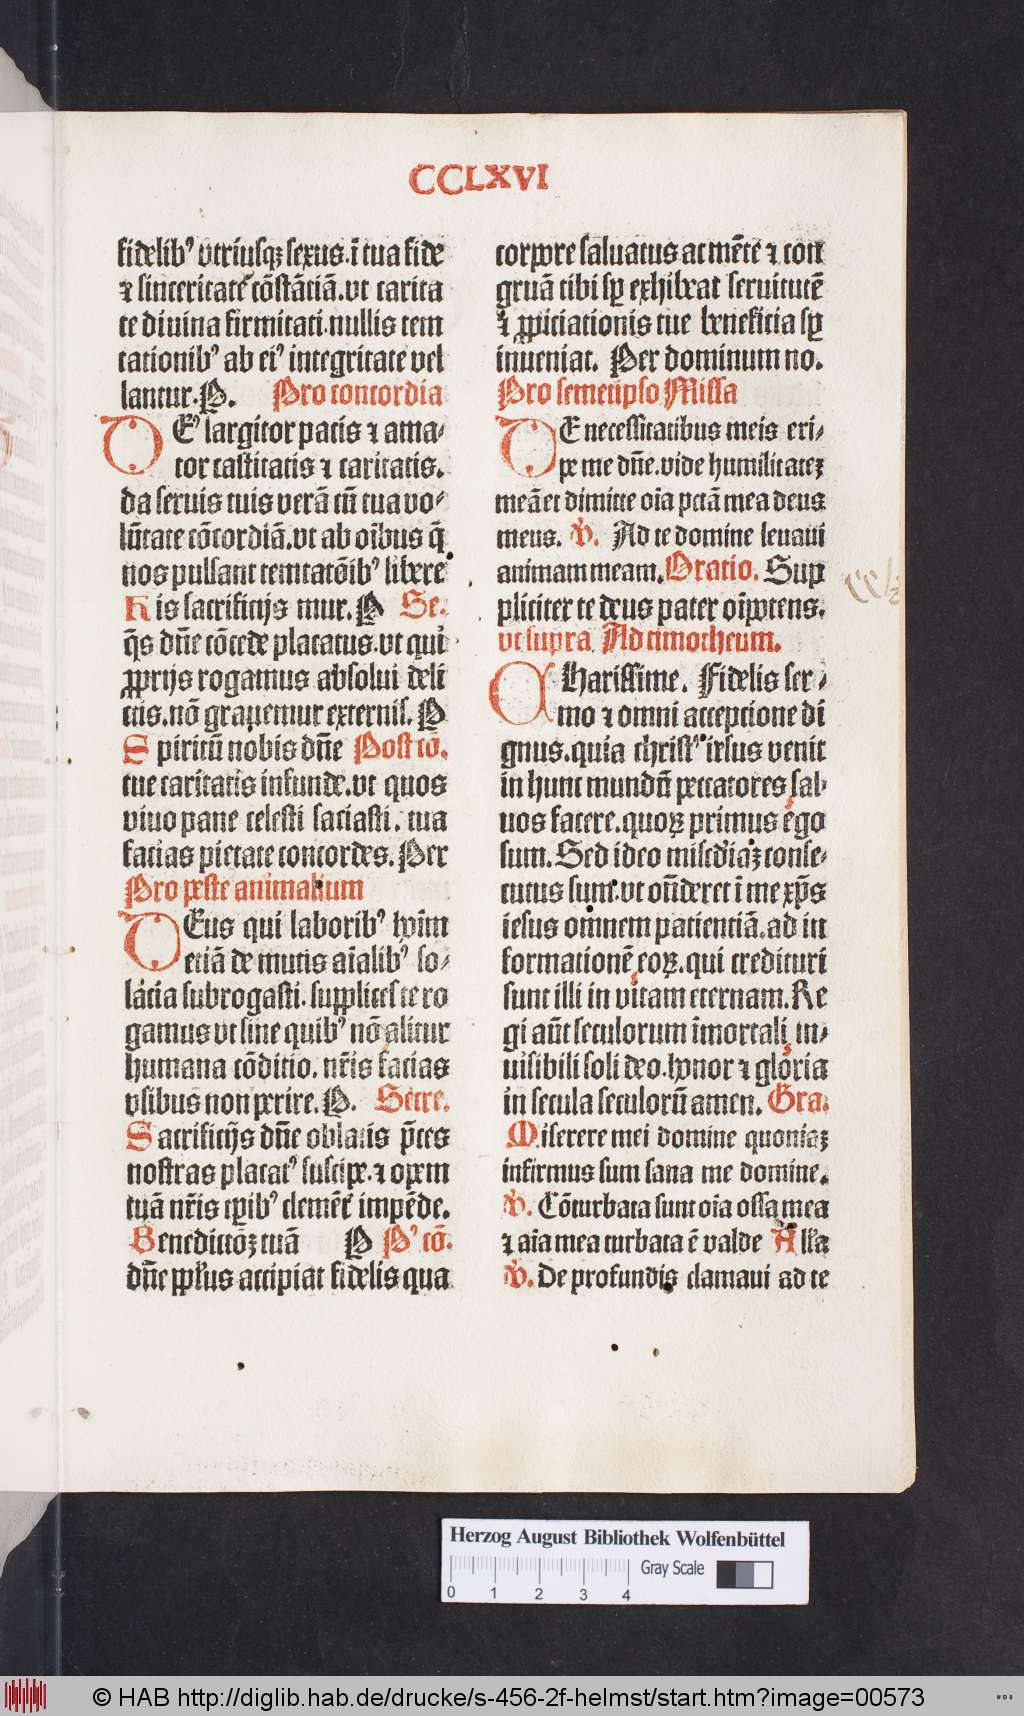 CCLXVI
fidelib⁹ vtriusqꝫ sexus.ī tua fide
⁊ sinceritatē cōstātiā.vt carita
te diuina firmitati.nullis tem
tationib⁹ ab ei⁹ integritate uel
lantur.P. Pro concordia
DE⁹ largitor pacis ⁊ ama⸗
tor castitatis ⁊ caritatis.
da seruis tuis verā cū tua vo⸗
lūtate cōcordiā.vt ab oībus q̄
nos pulsant temtatōib⁹ libere
His sacrificijs mur.P Se.
q̄s dn̄e cōcede placatus.vt qui
ꝓprijs rogamus absolui deli
ctis.nō grauemur externis.P
Spiritū nobis dn̄e Post cō.
tue caritatis infunde.vt quos
viuo pane celesti saciasti. tua
facias pietate concordes.Per
Pro peste animalium
DEus qui laborib⁹ hoīm
etiā de mutis aīalib⁹ so⸗
lacia subrogasti.supplices te ro
gamus vt sine quib⁹ nō alitur
humana cōditio. nr̄is facias
vsibus non perire.P. Secre.
Sacrificijs dn̄e oblatis p̄ces
nostras placat⁹ suscipe.⁊ opem
tuā nr̄is tꝑib⁹ clemēt impēde.
Benedictōꝫ tuā P P⁹ cō.
dn̄e ppl̄us accipiat fidelis qua
corpore saluatus ac mēte ⁊ con
gruā tibi sꝑ exhibeat seruitutē
⁊ ꝓpiciationis tue beneficia sꝑ
inueniat. Per dominum no.
Pro semetipso Missa
DE necessitatibus meis eri⸗
pe me dn̄e.vide humilitateꝫ
meā et dimitte oīa pctā mea deus
meus. ℣. Ad te domine leuaui
animam meam. Oratio. Sup
pliciter te deus pater oīpotens.
vt supra. Ad timotheum.
CHarissime. Fidelis ser⸗
mo ⁊ omni acceptione di
gnus.quia christ⁹ iesus venit
in hunc mundū peccatores sal
uos facere.quoꝝ primus ego
sum. Sed ideo misc̄diaꝫ conse⸗
cutus sum.vt on̄deret ī me xp̄s
iesus omnem patientiā.ad in
formationē eoꝝ.qui credituri
sunt illi in vitam eternam.Re
gi aūt seculorum īmortali in⸗
uisibili soli deo.honor ⁊ gloria
in secula seculorū amen. Gra.
Miserere mei domine quoniaꝫ
infirmus sum sana me domine.
℣. Cōturbata sunt oīa ossa mea
⁊ aīa mea turbata ē valde All'a
℣. De profundis clamaui ad te
Herzog August Bibliothek Wolfenbüttel
0 1 2 3 4 Gray Scale
© HAB http://diglib.hab.de/drucke/s-456-2f-helmst/start.htm?image=00573